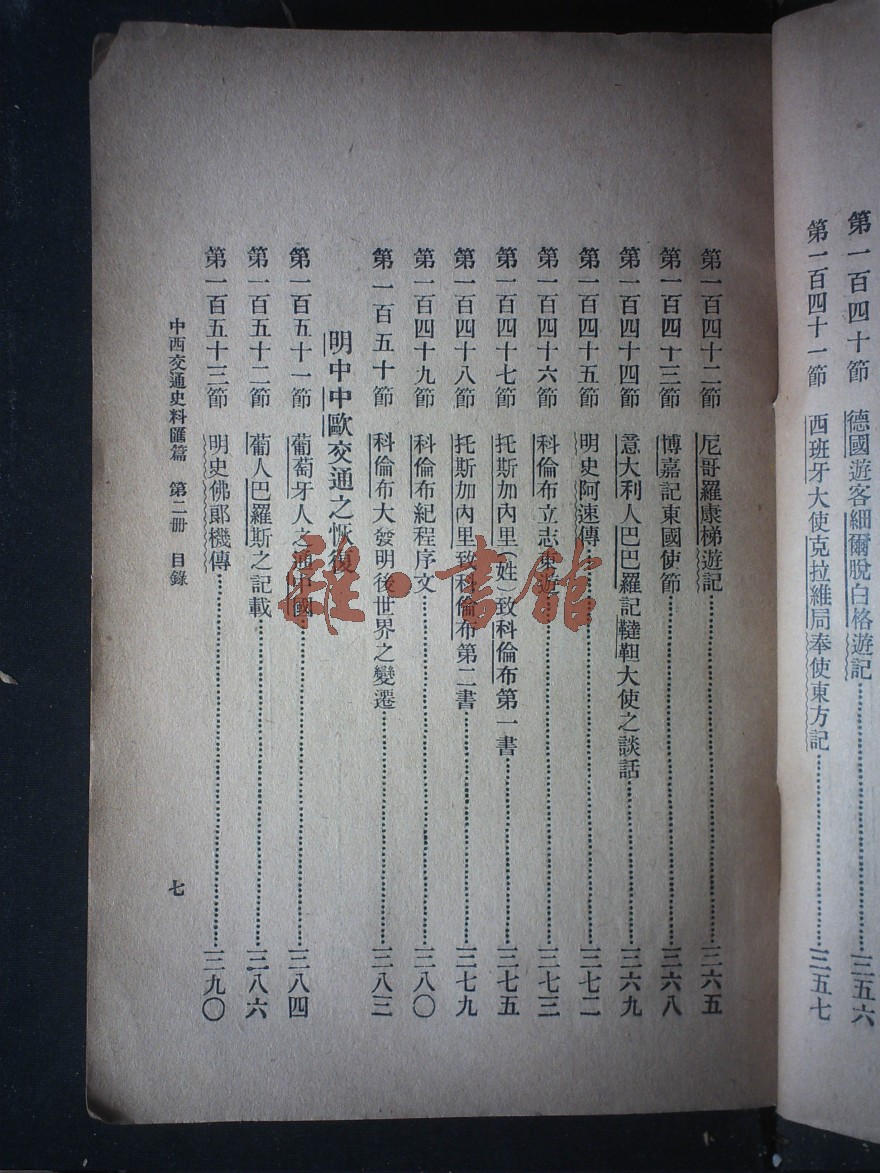 第一百四十節 德國遊客細爾脫白格遊記……三五六
第一百四十一節 西班牙大使克拉維局奉使東方記……三五七
第一百四十二節 尼哥羅康梯遊記……三六五
第一百四十三節 博嘉記東國使節……三六八
第一百四十四節 意大利人巴巴羅記韃靼大使之談話……三六九
第一百四十五節 明史阿速傳……三七二
第一百四十六節 科倫布立志東遊……三七三
第一百四十七節 托斯加內里(姓)致科倫布第一書……三七五
第一百四十八節 托斯加內里致科倫布第二書……三七九
第一百四十九節 科倫布紀程序文……三八〇
第一百五十節 科倫布大發明後世界之變遷……三八三
明中中歐交通之恢復
第一百五十一節 葡萄牙人之通中國……三八四
第一百五十二節 葡人巴羅斯之記載……三八六
第一百五十三節 明史佛郎機傳……三九〇
中西交通史料匯篇 第二册 目錄
七
雜·書館